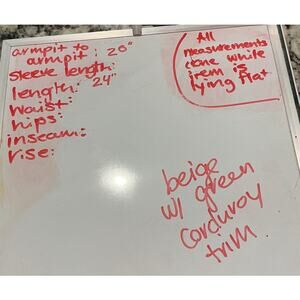 armpit to
armpit: 20"
sleeve length:
length: 24"
waist:
hips:
inseam:
rise:
All
measurements
done while
item is
lying flat
beige
w/ green
corduroy
trim